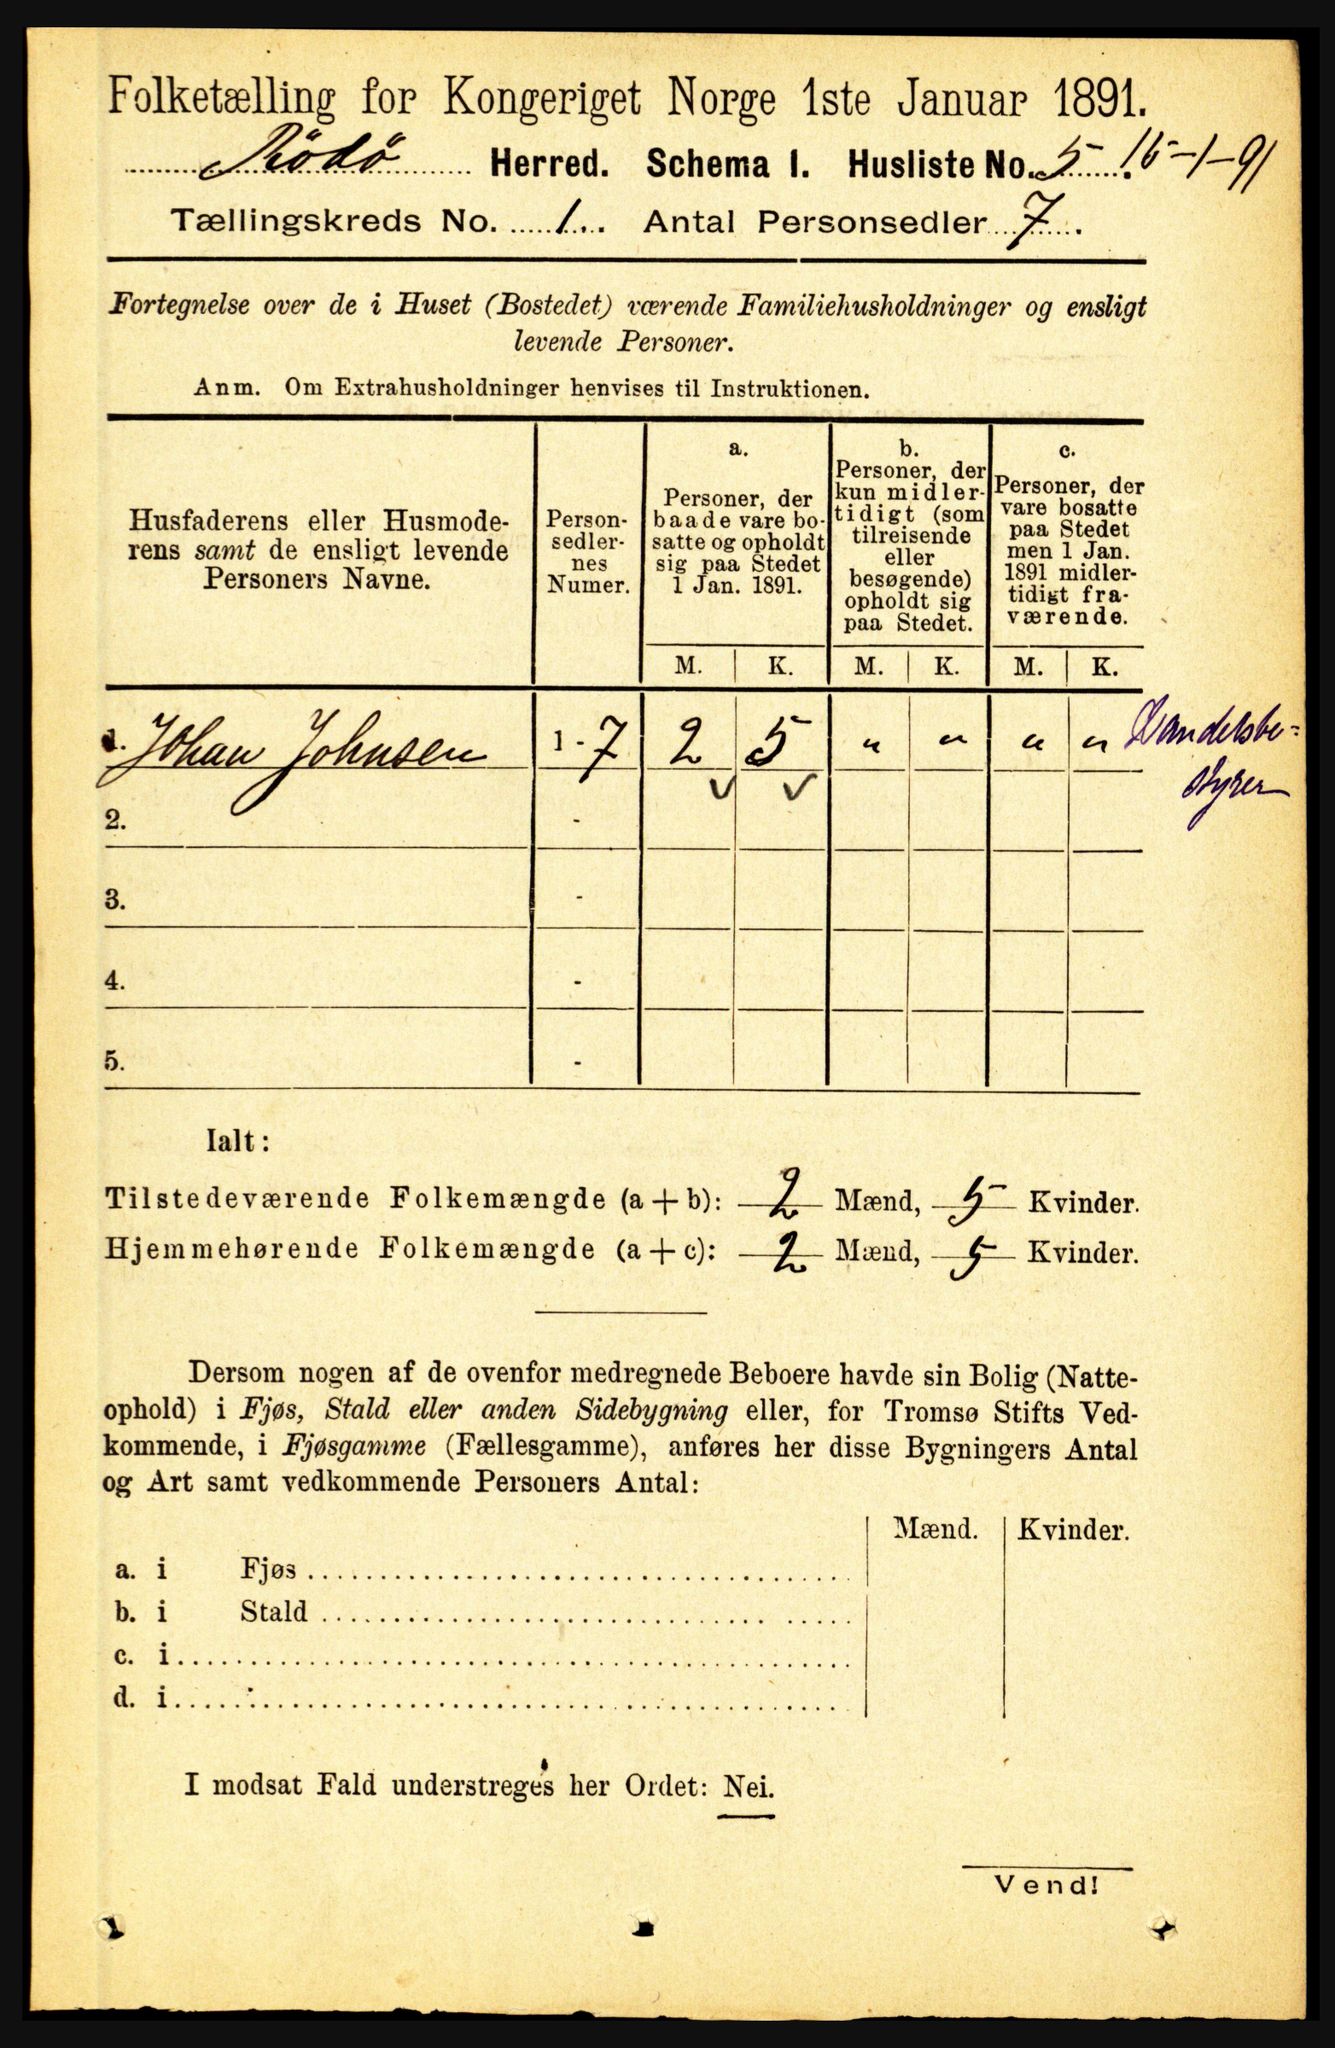 Folketælling for Kongeriget Norge 1ste Januar 1891.
Rödö Herred. Schema I. Husliste No. 5. 15-1-91
Tællingskreds No. 1. Antal Personsedler 7.
Fortegnelse over de i Huset (Bostedet) værende Familiehusholdninger og ensligt
levende Personer.
Anm. Om Extrahusholdninger henvises til Instruktionen.
Husfaderens eller Husmode-
rens samt de ensligt levende
Personers Navne.
Person-
sedler-
nes
Numer.
a.
Personer, der
baade vare bo-
satte og opholdt
sig paa Stedet
1 Jan. 1891.
b.
Personer, der
kun midler-
tidigt (som
tilreisende
eller
besøgende)
opholdt sig
paa Stedet.
c.
Personer, der
vare bosatte
paa Stedet
men 1 Jan.
1891 midler-
tidigt fra-
værende.
M. K. M. K. M. K.
1. Johan Johnsen 1 - 7 2 5 " " " " Handelsbe-
styrer
2. -
3. -
4. -
5. -
Ialt:
Tilstedeværende Folkemængde (a + b): 2 Mænd, 5 Kvinder.
Hjemmehørende Folkemængde (a + c): 2 Mænd, 5 Kvinder.
Dersom nogen af de ovenfor medregnede Beboere havde sin Bolig (Natte-
ophold) i Fjøs, Stald eller anden Sidebygning eller, for Tromsø Stifts Ved-
kommende, i Fjøsgamme (Fællesgamme), anføres her disse Bygningers Antal
og Art samt vedkommende Personers Antal:
Mænd. Kvinder.
a. i Fjøs
b. i Stald
c. i
d. i
I modsat Fald understreges her Ordet: Nei.
Vend!